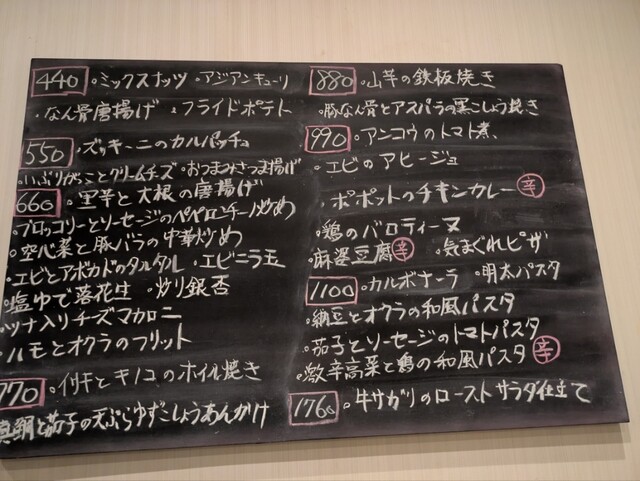 440 ・ミックスナッツ ・アジアンキューリ
・なん骨唐揚げ ・フライドポテト
550 ・ズッキーニのカルパッチョ
・いぶりがっことクリームチーズ ・おつまみさつま揚げ
660 ・里芋と大根の唐揚げ
・ブロッコリーとソーセージのペペロンチーノ炒め
・空心菜と豚バラの中華炒め
・エビとアボカドのタルタル ・エビニラ玉
・塩ゆで落花生 ・炒り銀杏
・ツナ入りチーズマカロニ
・ハモとオクラのフリット
770 ・イサキとキノコのホイル焼き
真鯛と茄子の天ぷらゆずこしょうあんかけ
880 ・山芋の鉄板焼き
・豚なん骨とアスパラの黒こしょう焼き
990 ・アンコウのトマト煮
・エビのアヒージョ
・ポポットのチキンカレー 辛
・鶏のバロティーヌ
・麻婆豆腐 辛 ・気まぐれピザ
1100 ・カルボナーラ ・明太パスタ
・納豆とオクラの和風パスタ
・茄子とソーセージのトマトパスタ
・激辛高菜と鶏の和風パスタ 辛
1760 ・牛サガリのローストサラダ仕立て